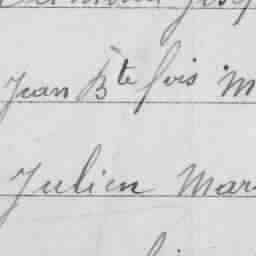 Jean Bte fois M
Julien Mar